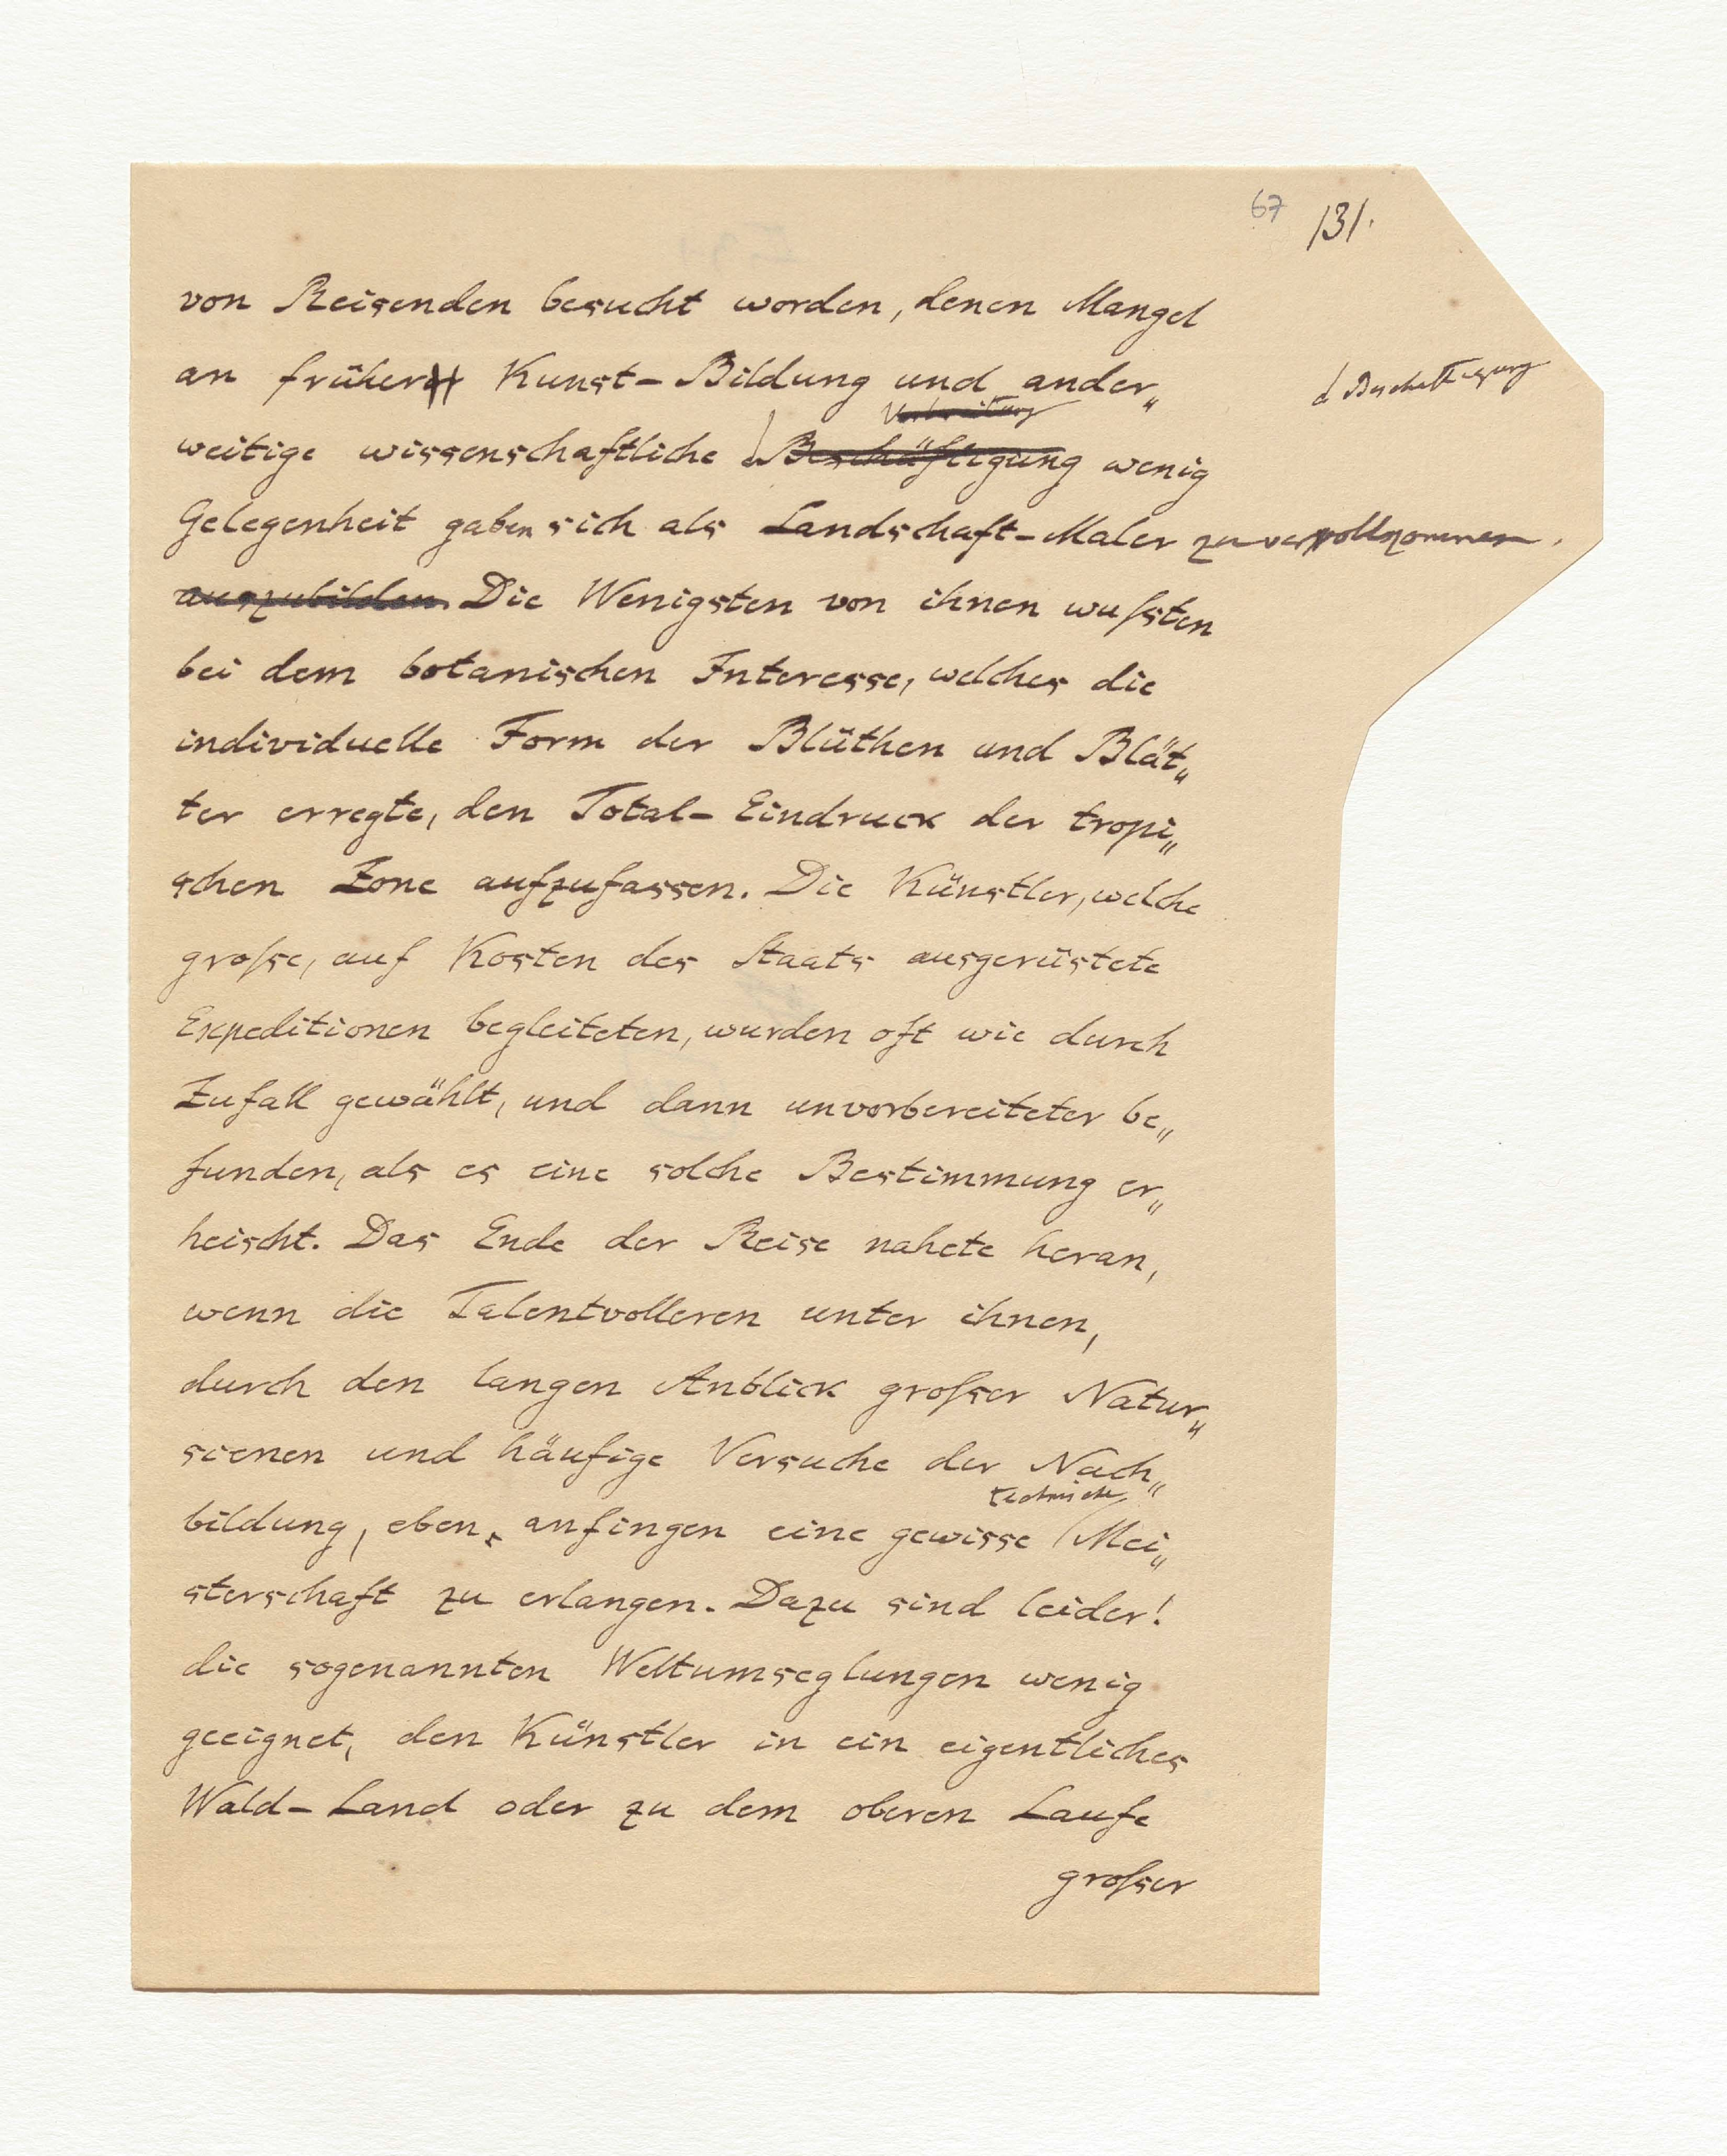 67 131.
von Reisenden besucht worden, denen Mangel
an früher Kunst-Bildung und ander„
d Beschäftigung
Vorbereitung
weitige wissenschaftliche Beschäftigung wenig
Gelegenheit gaben sich als Landschaft-Maler zu vervollkommnen.
auszubilden. Die Wenigsten von ihnen wußten
bei dem botanischen Interesse, welches die
individuelle Form der Blüthen und Blät„
ter erregte, den Total-Eindruck der tropi„
schen Zone aufzufassen. Die Künstler, welche
große, auf Kosten des Staats ausgerüstete
Expeditionen begleiteten, wurden oft wie durch
Zufall gewählt, und dann unvorbereiteter be„
funden, als es eine solche Bestimmung er„
heischt. Das Ende der Reise nahete heran,
wenn die Talentvolleren unter ihnen,
durch den langen Anblick großer Natur„
scenen und häufige Versuche der Nach„
technische
bildung, eben anfingen eine gewisse Mei„
sterschaft zu erlangen. Dazu sind leider!
die sogenannten Weltumseglungen wenig
geeignet, den Künstler in ein eigentliches
Wald-Land oder zu dem oberen Laufe
großer